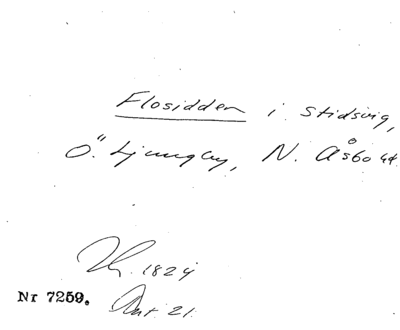 Flosidden i Stidsvig,
Ö. Ljungby, N. Åsbo hd.
1824
Nr 7259.
21.